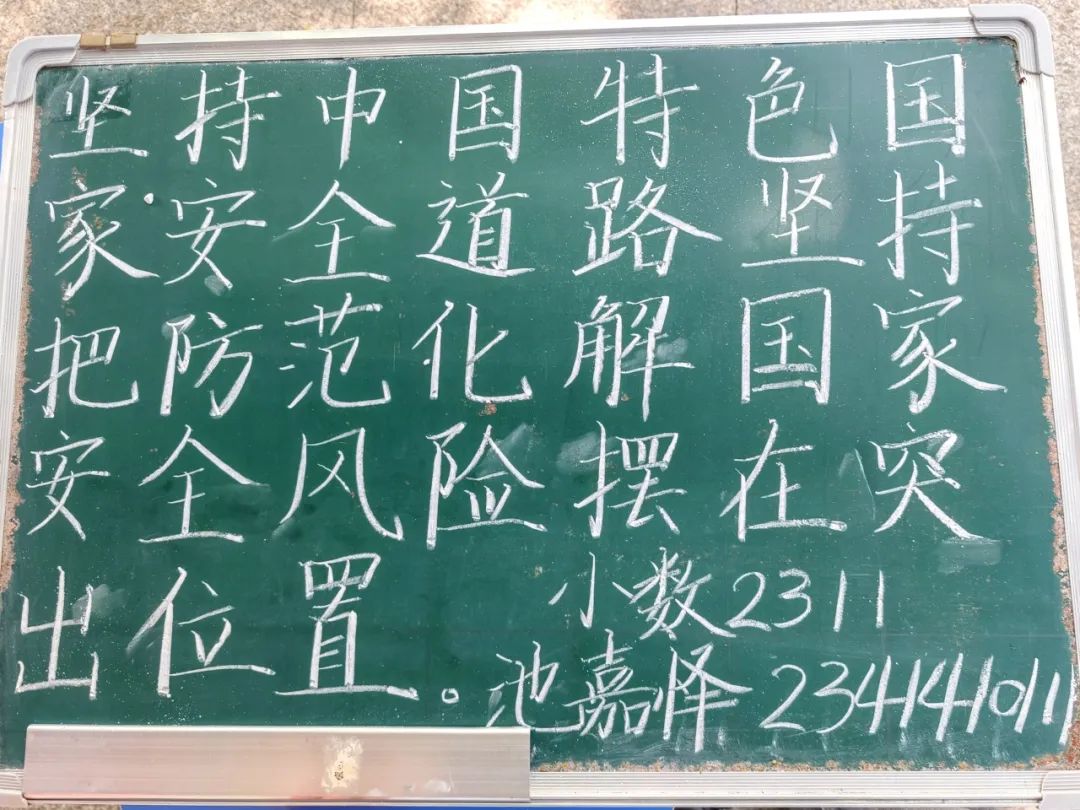 坚持中国特色国
家安全道路坚持
把防范化解国家
安全风险摆在突
出位置。
小数2311
池嘉怿 234141011